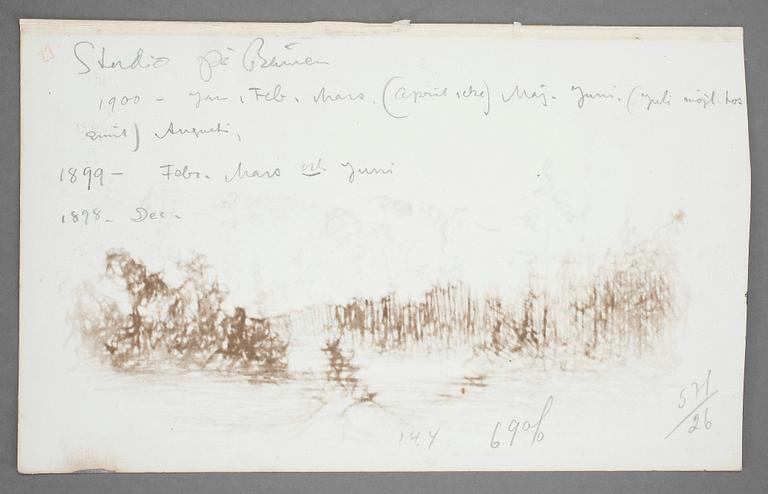 33
Studio på
1900 - Jan, Feb. Mars. (April icke) Maj. Juni. (Juli möjl. hos
Augusti,
1899 - Febr. Mars och Juni
1898 - Dec.
14.4
571/26